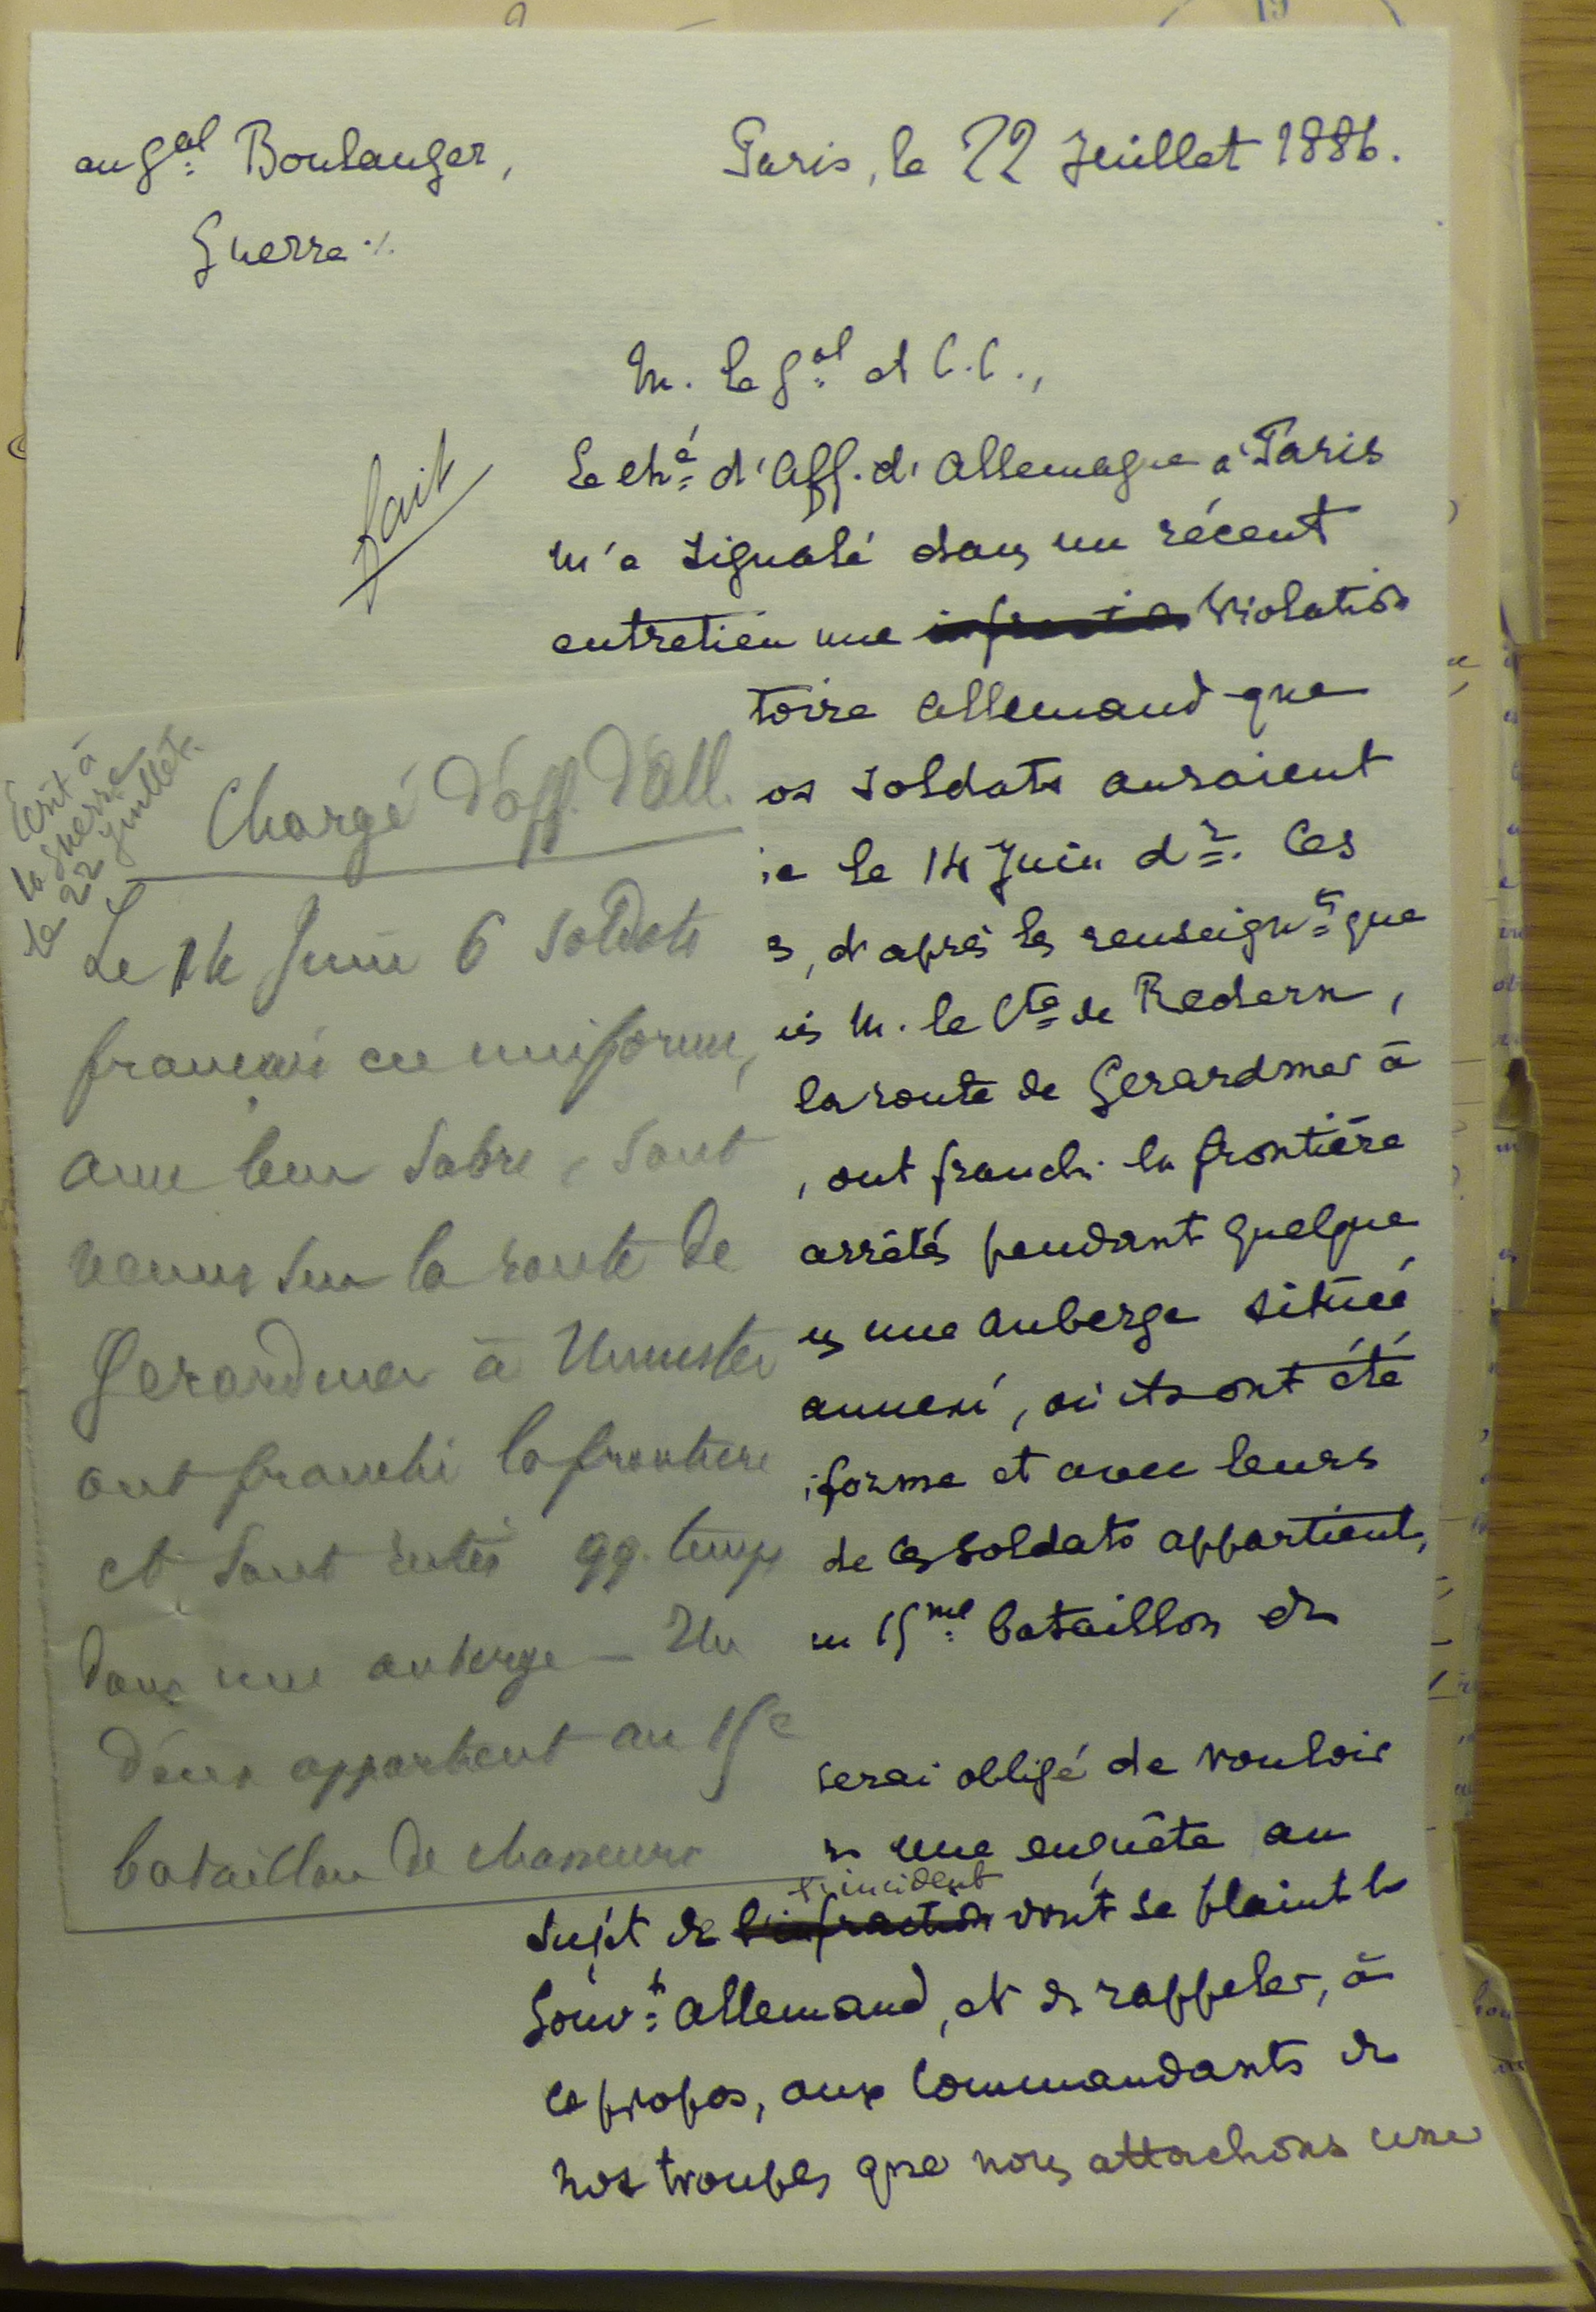 au Gal Boulanger,
Guerre ./.
Paris, le 22 Juillet 1886.
M. le Gal et C.C.,
fait
Le ché d'Aff. d'Allemagne à Paris
m'a signalé dans un récent
entretien une infraction violation
toire allemand que
os soldats auraient
ie le 14 Juin dr. Ces
s, d'après les renseignts que
is M. le Cte de Redern,
la route de Gerardmer à
, ont franchi la frontière
arrêtés pendant quelque
s une auberge située
annexé, où ils ont été
iforme et avec leurs
de ces soldats appartient,
u 15me bataillon de
serai obligé de vouloir
une enquête au
l'incident
sujet de l'infraction dont se plaint le
Gouvt allemand, et de rappeler, à
ce propos, aux Commandants de
nos troupes que nous attachons une
Ecrit à
la guerre
le 22 juillet.
Chargé d'aff. d'All.
Le 14 Juin 6 soldats
français en uniforme,
avec leur sabre, sont
venus sur la route de
Gerardmer à Munster
ont franchi la frontière
et sont restés qq. temps
dans une auberge — Un
d'eux appartient au 15e
bataillon de chasseurs